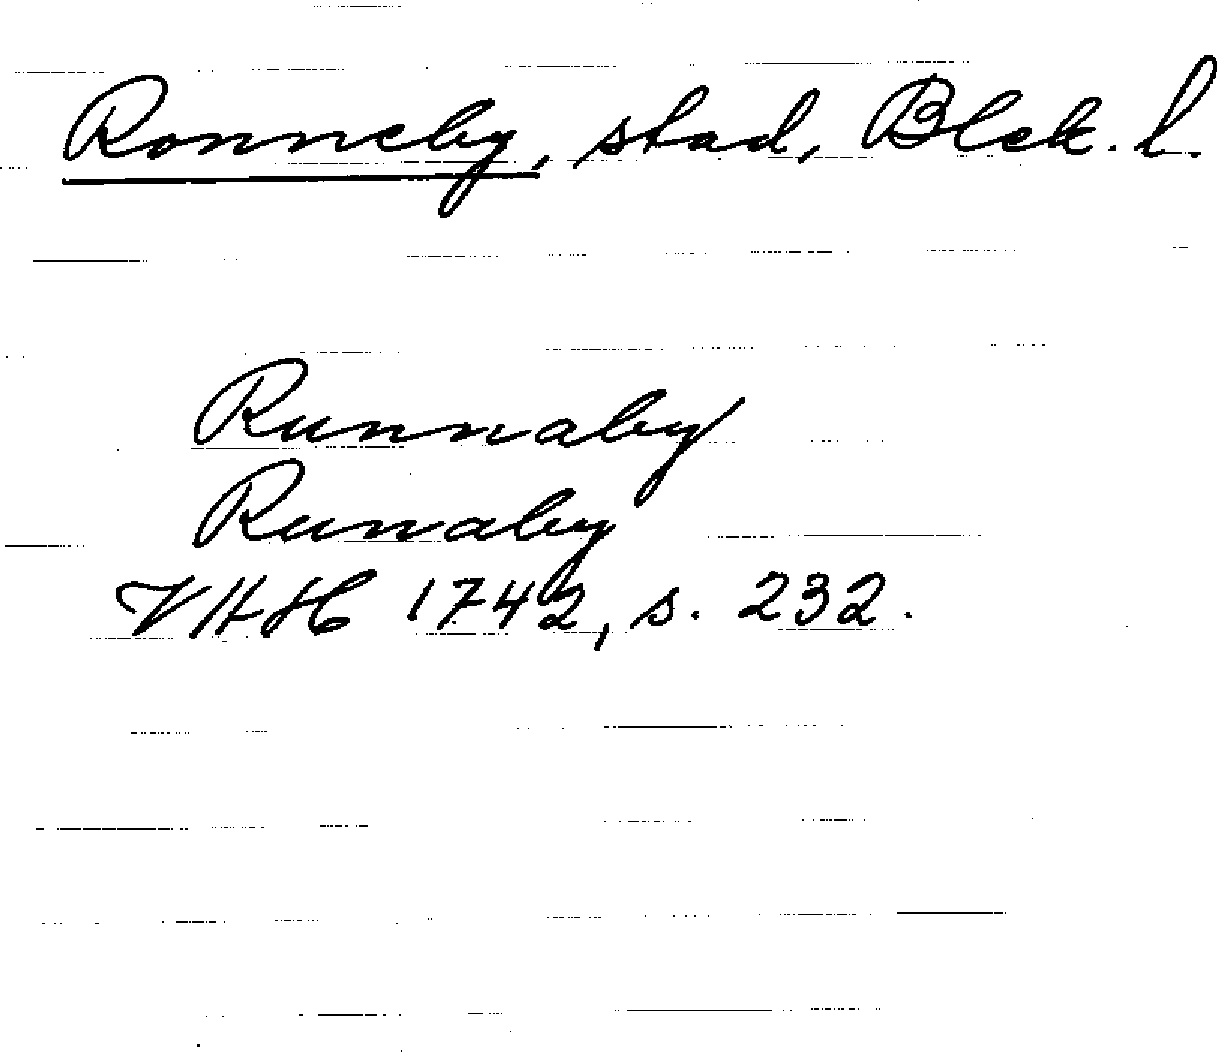 Ronneby, stad, Blek. l.
Runnaby
Runaby
VHH 1742, s. 232.